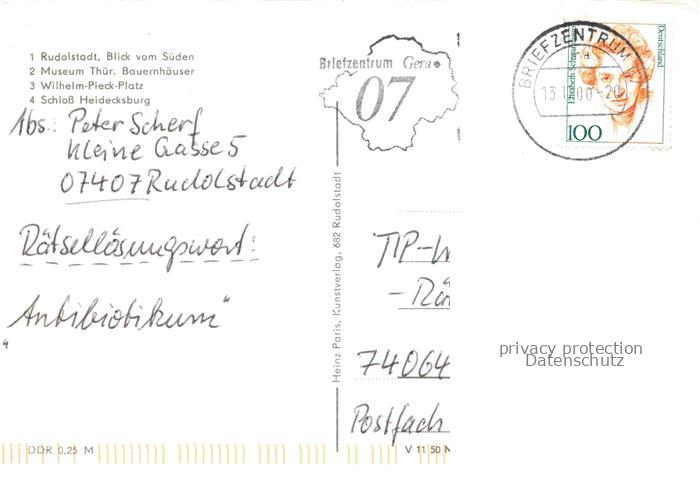 1 Rudolstadt, Blick vom Süden
2 Museum Thür. Bauernhäuser
3 Wilhelm-Pieck-Platz
4 Schloß Heidecksburg
Abs.: Peter Scherf
Kleine Gasse 5
07407 Rudolstadt
Rätsellösungswort:
"Antibiotikum"
DDR 0,25 M
Heinz Paris, Kunstverlag, 682 Rudolstadt
Briefzentrum Gera
07
BRIEFZENTRUM
Elisabeth Schwarzhaupt
Deutschland
100
TIP-
- Rä
74064
Postfach
V 11 50
privacy protection
Datenschutz